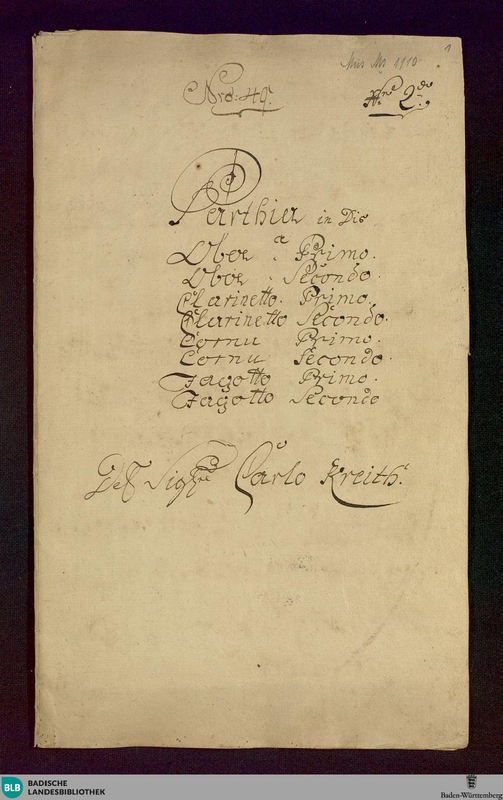 Mus. Ms. 1119
1
Nro: 49.
Nro 2do
Parthia in Dis
Oboe Primo.
Oboe Secondo.
Clarinetto Primo.
Clarinetto Secondo.
Cornu Primo.
Cornu Secondo.
Fagotto Primo.
Fagotto Secondo
Del Sigre Carlo Kreith.
BLB
BADISCHE
LANDESBIBLIOTHEK
Baden-Württemberg